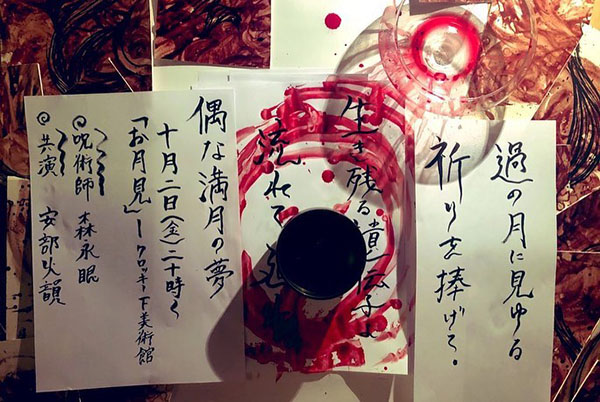 過の月に見ゆる
祈りを捧げて。
生き残る遺伝子よ
流れて
偶な満月の夢
十月二日(金)二十時〜
「お月見」ークロッキー下美術館
◎呪術師 森永眠
◎共演 安部火韻